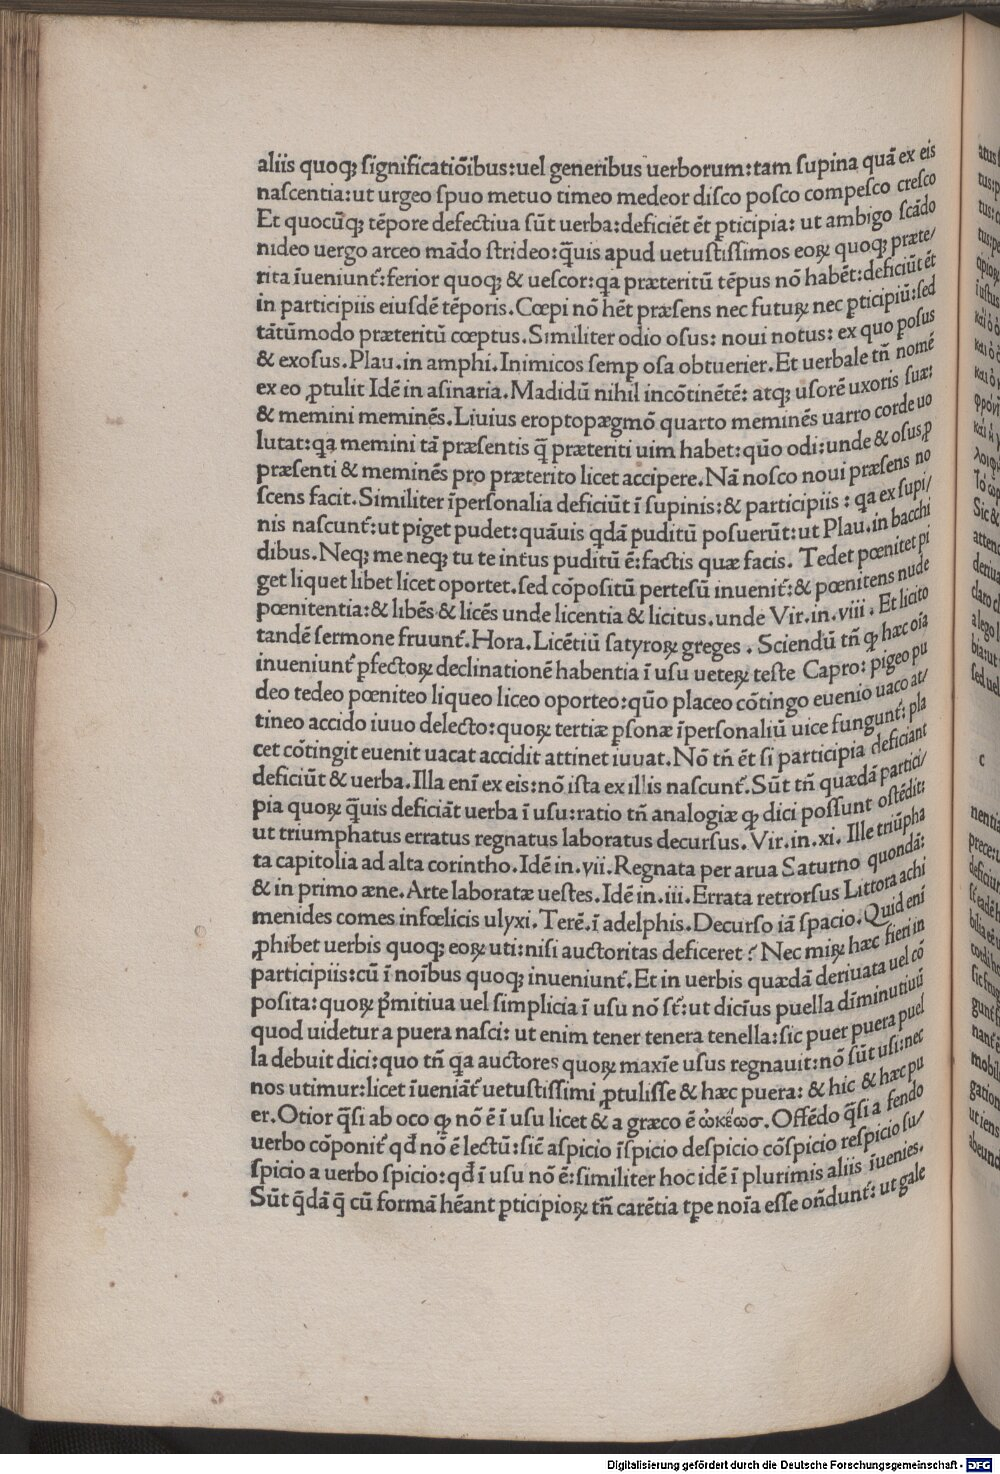 aliis quoqꝫ ſignificatiõibus:uel generibus uerborum:tam ſupina quã ex eis
naſcentia:ut urgeo ſpuo metuo timeo medeor diſco poſco compeſco creſco
Et quocũqꝫ tẽpore defectiua ſũt uerba:deficiẽt ẽt ꝑticipia: ut ambigo ſcãdo
nideo uergo arceo mãdo ſtrideo:q̃uis apud uetuſtiſſimos eoꝝ quoqꝫ præte/
rita ĩueniunt᷑:ferior quoqꝫ & ueſcor:qa præteritũ tẽpus nõ habẽt:deficiũt ẽt
in participiis eiuſdẽ tẽporis.Cœpi nõ hẽt præſens nec futuꝝ nec ꝑticipiũ:ſed
tãtũmodo præteritũ cœptus.Similiter odio oſus: noui notus: ex quo poſus
& exoſus.Plau.in amphi.Inimicos ſemp oſa obtuerier.Et uerbale tñ nomẽ
ex eo ꝓtulit Idẽ in aſinaria.Madidũ nihil incõtinẽtẽ: atqꝫ uſorẽ uxoris ſuæ:
& memini meminẽs.Liuius eroptopægmõ quarto meminẽs uarro corde uo
lutat:qa memini tã præſentis q̃ præteriti uim habet:quõ odi:unde & oſus,ꝓ
præſenti & meminẽs pro præterito licet accipere.Nã noſco noui præſens no
ſcens facit.Similiter ĩperſonalia deficiũt ĩ ſupinis:& participiis : qa ex ſupi/
nis naſcunt᷑:ut piget pudet:quãuis qdã puditũ poſuerũt:ut Plau.in bacchi
dibus.Neqꝫ me neqꝫ tu te intus puditũ ẽ:factis quæ facis. Tedet pœnitet pi
get liquet libet licet oportet.ſed cõpoſitũ perteſũ inuenit᷑:& pœnitens nude
pœnitentia:& libẽs & licẽs unde licentia & licitus.unde Vir.in.viii. Et licito
tandẽ ſermone fruunt᷑.Hora.Licẽtiũ ſatyroꝝ greges . Sciendũ tñ ꝙ hæc oĩa
inueniunt᷑ ꝑfectoꝝ declinationẽ habentia ĩ uſu ueteꝝ teſte Capro: pigeo pu
deo tedeo pœniteo liqueo liceo oporteo:quõ placeo cõtingo euenio uaco at/
tineo accido iuuo delecto:quoꝝ tertiæ ꝑſonæ ĩperſonaliũ uice fungunt᷑: pla
cet cõtingit euenit uacat accidit attinet iuuat.Nõ tñ ẽt ſi participia deficiant
deficiũt & uerba.Illa enĩ ex eis:nõ iſta ex illis naſcunt᷑.Sũt tñ quædã partici/
pia quoꝝ q̃uis deficiãt uerba ĩ uſu:ratio tñ analogiæ ꝙ dici poſſunt oſtẽdit:
ut triumphatus erratus regnatus laboratus decurſus. Vir.in.xi. Ille triũpha
ta capitolia ad alta corintho.Idẽ in.vii.Regnata per arua Saturno quondã:
& in primo æne.Arte laboratæ ueſtes.Idẽ in.iii.Errata retrorſus Littora achi
menides comes infœlicis ulyxi.Terẽ.ĩ adelphis.Decurſo iã ſpacio.Quid enĩ
ꝓhibet uerbis quoqꝫ eoꝝ uti:niſi auctoritas deficeret ? Nec miꝝ hæc fieri in
participiis:cũ ĩ noĩbus quoqꝫ inueniunt᷑.Et in uerbis quædã deriuata uel cõ
poſita:quoꝝ pͥmitiua uel ſimplicia ĩ uſu nõ ſt᷑:ut diciu̅s puella dĩminutiuũ
quod uidetur a puera naſci: ut enim tener tenera tenella:ſic puer puera puel
la debuit dici:quo tñ qa auctores quoꝝ maxĩe uſus regnauit:nõ ſũt uſi:nec
nos utimur:licet ĩueniãt᷑ uetuſtiſſimi ꝓtuliſſe & hæc puera: & hic & hæc pu
er.Otior q̃ſi ab oco ꝙ nõ ẽ ĩ uſu licet & a græco ẽ ὠκέωσ.Offẽdo q̃ſi a fendo
uerbo cõponit᷑ qđ nõ ẽ lectũ:ſic̃ aſpicio ĩſpicio deſpicio cõſpicio reſpicio ſu/
ſpicio a uerbo ſpicio:qđ ĩ uſu nõ ẽ:ſimiliter hoc idẽ ĩ plurimis aliis ĩuenies.
Sũt q̃dã q̃ cũ formã hẽant ꝑticipioꝝ tñ carẽtia tꝑe noĩa eſſe oñdunt᷑: ut gale
Digitalisierung gefördert durch die Deutsche Forschungsgemeinschaft - DFG